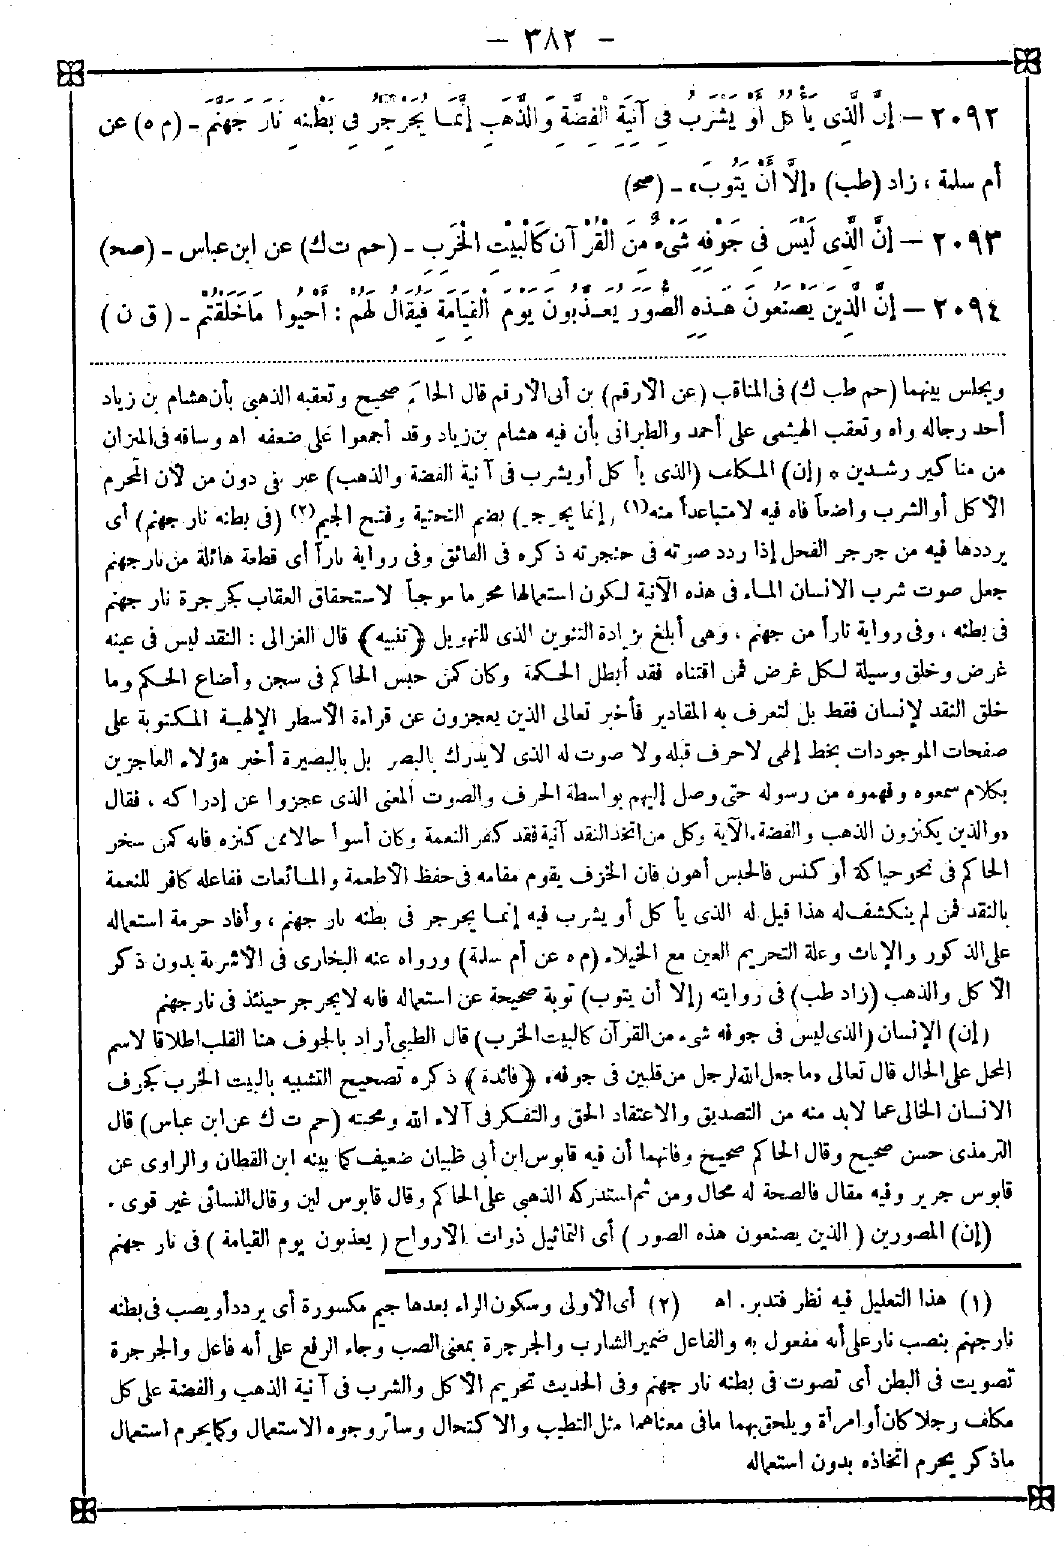 – ٣٨٢ –
٢٠٩٢ – إِنَّ الَّذِى يَأْكُلُ أَوْ يَشْرَبُ فِى آنِيَةِ الْفِضَّةِ وَالذَّهَبِ إِنَّمَا يُجَرْجِرُ فِى بَطْنِهِ نَارَ جَهَنَّمَ – (م ه) عن
أم سلمة ، زاد (طب) «إِلَّا أَنْ يَتُوبَ» – (صح)
٢٠٩٣ – إِنَّ الَّذِى لَيْسَ فِى جَوْفِهِ شَىْءٌ مِنَ الْقُرْآنِ كَالْبَيْتِ الْخَرِبِ – (حم ت ك) عن ابن عباس – (صح)
٢٠٩٤ – إِنَّ الَّذِينَ يَصْنَعُونَ هَذِهِ الصُّوَرَ يُعَذَّبُونَ يَوْمَ الْقِيَامَةِ فَيُقَالُ لَهُمْ : أَحْيُوا مَا خَلَقْتُمْ – (ق ن)
ويجلس بينهما (حم طب ك) فى المناقب (عن الأرقم) بن أبى الأرقم قال الحاكم صحيح وتعقبه الذهبى بأن هشام بن زياد
أحد رجاله واه وتعقب الهيثمى على أحمد والطبرانى بأن فيه هشام بن زياد وقد أجمعوا على ضعفه اه وساقه فى الميزان
من مناكير رشدين * (إن) المكلف (الذى يأكل أو يشرب فى آنية الفضة والذهب) عبر بفى دون من لأن المحرم
الأكل أو الشرب واضعاً فاه فيه لا متباعداً منه(١) (إنما يجرجر) بضم التحتية وفتح الجيم(٢) (فى بطنه نار جهنم) أى
يرددها فيه من جرجر الفحل إذا ردد صوته فى حنجرته ذكره فى الفائق وفى رواية ناراً أى قطعة هائلة من نار جهنم
جعل صوت شرب الانسان الماء فى هذه الآنية لكون استعمالها محرما موجباً لاستحقاق العقاب كجرجرة نار جهنم
فى بطنه ، وفى رواية ناراً من جهنم ، وهى أبلغ بزيادة التنوين الذى للتهويل (تنبيه) قال الغزالى : النقد ليس فى عينه
غرض وخلق وسيلة لكل غرض فمن اقتناه فقد أبطل الحكمة وكان كمن حبس الحاكم فى سجن وأضاع الحكم وما
خلق النقد لإنسان فقط بل لتعرف به المقادير فأخبر تعالى الذين يعجزون عن قراءة الأسطر الإلهية المكتوبة على
صفحات الموجودات بخط إلهى لا حرف قبله ولا صوت له الذى لا يدرك بالبصر بل بالبصيرة أخبر هؤلاء العاجزين
بكلام سمعوه وفهموه من رسوله حتى وصل إليهم بواسطة الحرف والصوت المعنى الذى عجزوا عن إدراكه ، فقال
«والذين يكنزون الذهب والفضة» الآية وكل من اتخذ النقد آنية فقد كفر النعمة وكان أسوأ حالا ممن كنزه فانه كمن سخر
الحاكم فى نحو حياكة أو كنس فالحبس أهون فان الخزف يقوم مقامه فى حفظ الأطعمة والمائعات ففاعله كافر للنعمة
بالنقد فمن لم ينكشف له هذا قيل له الذى يأكل أو يشرب فيه إنما يجرجر فى بطنه نار جهنم ، وأفاد حرمة استعماله
على الذكور والإناث وعلة التحريم العين مع الخيلاء (م ه عن أم سلمة) ورواه عنه البخارى فى الأشربة بدون ذكر
الأكل والذهب (زاد طب) فى روايته (إلا أن يتوب) توبة صحيحة عن استعماله فانه لا يجرجر حينئذ فى نار جهنم
(إن) الإنسان (الذى ليس فى جوفه شىء من القرآن كالبيت الخرب) قال الطيبى أراد بالجوف هنا القلب إطلاقا لاسم
المحل على الحال قال تعالى «ما جعل الله لرجل من قلبين فى جوفه» (فائدة) ذكره تصحيح التشبيه بالبيت الخرب كجوف
الانسان الخالى عما لابد منه من التصديق والاعتقاد الحق والتفكر فى آلاء الله ومحبته (حم ت ك عن ابن عباس) قال
الترمذى حسن صحيح وقال الحاكم صحيح وفاتهما أن فيه قابوس ابن أبى ظبيان ضعيف كما بينه ابن القطان والراوى عن
قابوس جرير وفيه مقال فالصحة له محال ومن ثم استدركه الذهبى على الحاكم وقال قابوس لين وقال النسائى غير قوى .
(إن) المصورين ( الذين يصنعون هذه الصور ) أى التماثيل ذوات الأرواح ( يعذبون يوم القيامة ) فى نار جهنم
(١) هذا التعليل فيه نظر فتدبر. اه (٢) أى الأولى وسكون الراء بعدها جيم مكسورة أى يردد أو يصب فى بطنه
نار جهنم بنصب نار على أنه مفعول به والفاعل ضمير الشارب والجرجرة بمعنى الصب وجاء الرفع على أنه فاعل والجرجرة
تصويت فى البطن أى تصوت فى بطنه نار جهنم وفى الحديث تحريم الأكل والشرب فى آنية الذهب والفضة على كل
مكلف رجلا كان أو امرأة ويلحق بهما مافى معناهما مثل التطيب والاكتحال وسائر وجوه الاستعمال وكما يحرم استعمال
ماذكر يحرم اتخاذه بدون استعماله